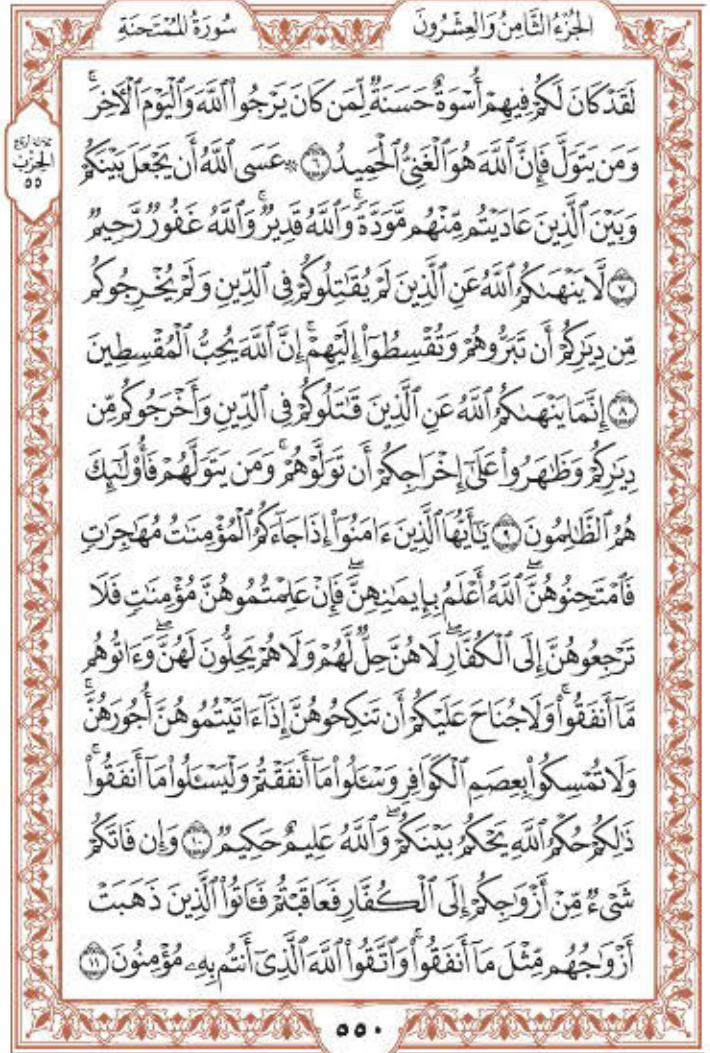 الجُزْءُ الثَّامِنُ وَالعِشْرُونَ
سُورَةُ المُمْتَحنَةِ
لَقَدۡ كَانَ لَكُمۡ فِيهِمۡ أُسۡوَةٌ حَسَنَةٞ لِّمَن كَانَ يَرۡجُواْ ٱللَّهَ وَٱلۡيَوۡمَ ٱلۡأٓخِرَۚ
وَمَن يَتَوَلَّ فَإِنَّ ٱللَّهَ هُوَ ٱلۡغَنِيُّ ٱلۡحَمِيدُ ٦ ۞ عَسَى ٱللَّهُ أَن يَجۡعَلَ بَيۡنَكُمۡ
الحِزْب
٥٥
وَبَيۡنَ ٱلَّذِينَ عَادَيۡتُم مِّنۡهُم مَّوَدَّةٗۚ وَٱللَّهُ قَدِيرٞۚ وَٱللَّهُ غَفُورٞ رَّحِيمٞ
٧ لَّا يَنۡهَىٰكُمُ ٱللَّهُ عَنِ ٱلَّذِينَ لَمۡ يُقَٰتِلُوكُمۡ فِي ٱلدِّينِ وَلَمۡ يُخۡرِجُوكُم
مِّن دِيَٰرِكُمۡ أَن تَبَرُّوهُمۡ وَتُقۡسِطُوٓاْ إِلَيۡهِمۡۚ إِنَّ ٱللَّهَ يُحِبُّ ٱلۡمُقۡسِطِينَ
٨ إِنَّمَا يَنۡهَىٰكُمُ ٱللَّهُ عَنِ ٱلَّذِينَ قَٰتَلُوكُمۡ فِي ٱلدِّينِ وَأَخۡرَجُوكُم مِّن
دِيَٰرِكُمۡ وَظَٰهَرُواْ عَلَىٰٓ إِخۡرَاجِكُمۡ أَن تَوَلَّوۡهُمۡۚ وَمَن يَتَوَلَّهُمۡ فَأُوْلَٰٓئِكَ
هُمُ ٱلظَّٰلِمُونَ ٩ يَٰٓأَيُّهَا ٱلَّذِينَ ءَامَنُوٓاْ إِذَا جَآءَكُمُ ٱلۡمُؤۡمِنَٰتُ مُهَٰجِرَٰتٖ
فَٱمۡتَحِنُوهُنَّۖ ٱللَّهُ أَعۡلَمُ بِإِيمَٰنِهِنَّۖ فَإِنۡ عَلِمۡتُمُوهُنَّ مُؤۡمِنَٰتٖ فَلَا
تَرۡجِعُوهُنَّ إِلَى ٱلۡكُفَّارِۖ لَا هُنَّ حِلّٞ لَّهُمۡ وَلَا هُمۡ يَحِلُّونَ لَهُنَّۖ وَءَاتُوهُم
مَّآ أَنفَقُواْۚ وَلَا جُنَاحَ عَلَيۡكُمۡ أَن تَنكِحُوهُنَّ إِذَآ ءَاتَيۡتُمُوهُنَّ أُجُورَهُنَّۚ
وَلَا تُمۡسِكُواْ بِعِصَمِ ٱلۡكَوَافِرِ وَسۡـَٔلُواْ مَآ أَنفَقۡتُمۡ وَلۡيَسۡـَٔلُواْ مَآ أَنفَقُواْۚ
ذَٰلِكُمۡ حُكۡمُ ٱللَّهِ يَحۡكُمُ بَيۡنَكُمۡۖ وَٱللَّهُ عَلِيمٌ حَكِيمٞ ١٠ وَإِن فَاتَكُمۡ
شَيۡءٞ مِّنۡ أَزۡوَٰجِكُمۡ إِلَى ٱلۡكُفَّارِ فَعَاقَبۡتُمۡ فَـَٔاتُواْ ٱلَّذِينَ ذَهَبَتۡ
أَزۡوَٰجُهُم مِّثۡلَ مَآ أَنفَقُواْۚ وَٱتَّقُواْ ٱللَّهَ ٱلَّذِيٓ أَنتُم بِهِۦ مُؤۡمِنُونَ ١١
٥٥٠